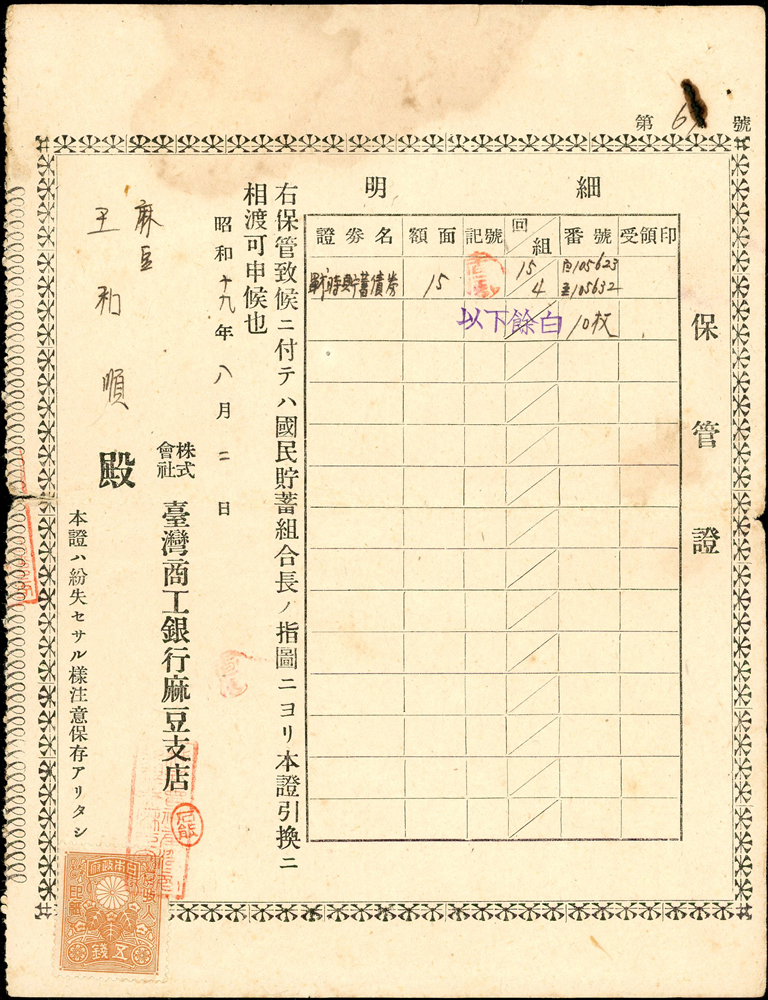 第 6 號
保管證
細明
證劵名 額面 記號 回組 番號 受領印
戰時貯蓄債券 15 15 自105623
4 至105632
以下餘白 10枚
右保管致候ニ付テハ國民貯蓄組合長ノ指圖ニヨリ本證引換ニ
相渡可申候也
昭和十九年八月二日
株式會社 臺灣商工銀行麻豆支店
麻豆
王和順 殿
本證ハ紛失セサル樣注意保存アリタシ
日本政府
收入印紙
五錢